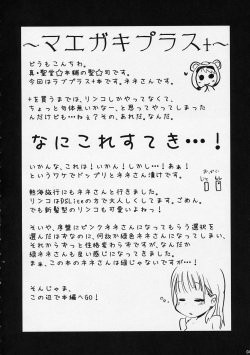 ～マエガキプラス+～
どうもこんちわ。
真・聖堂☆本舗の聖☆司です。
今回はラブプラス+本です。ネネさんです。
+を買うまでは、リンコしかやってなくて、
ちょっと旬体無いかなー、と思ってやってしまった
んだけども…ねぇ？その、あれだ。なんだ。
なにこれすてき…！
いかんな、これは！いかん！しかし…！あぁ！
というワケでドップリとネネさん漬けです。
熱海旅行にもネネさんと行きました。
リンコはDSLiteの方で大人しくしてます。ごめん。
でも新髪型のリンコも可愛いよね！
そいや、序盤にピンクネネさんになってもらう選択
を選んだはずなのに、何故か緑色ネネさんになってしまい、
それからずっと性格変わらずですが、なんだか
緑ネネさんも良い感じになってきました。
まぁ、この本のネネさんは緑じゃないですが…！
そんじゃま、
この辺で本編へGO！